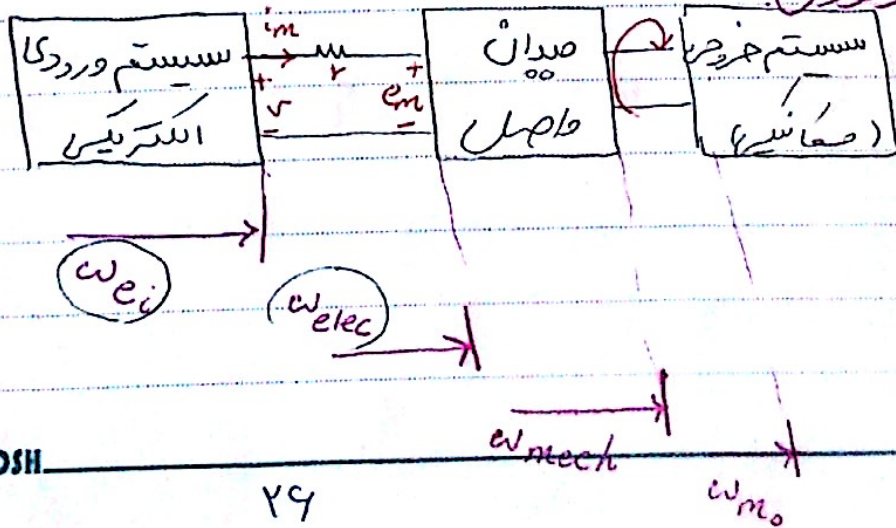 سیستم ورودی
الکتریکی
i_m
r
+ v −
+ e_m −
میدان
واصل
سیستم خروجی
(مکانیکی)
ω_ei
ω_elec
ω_mech
ω_mo
OSH
۲۶